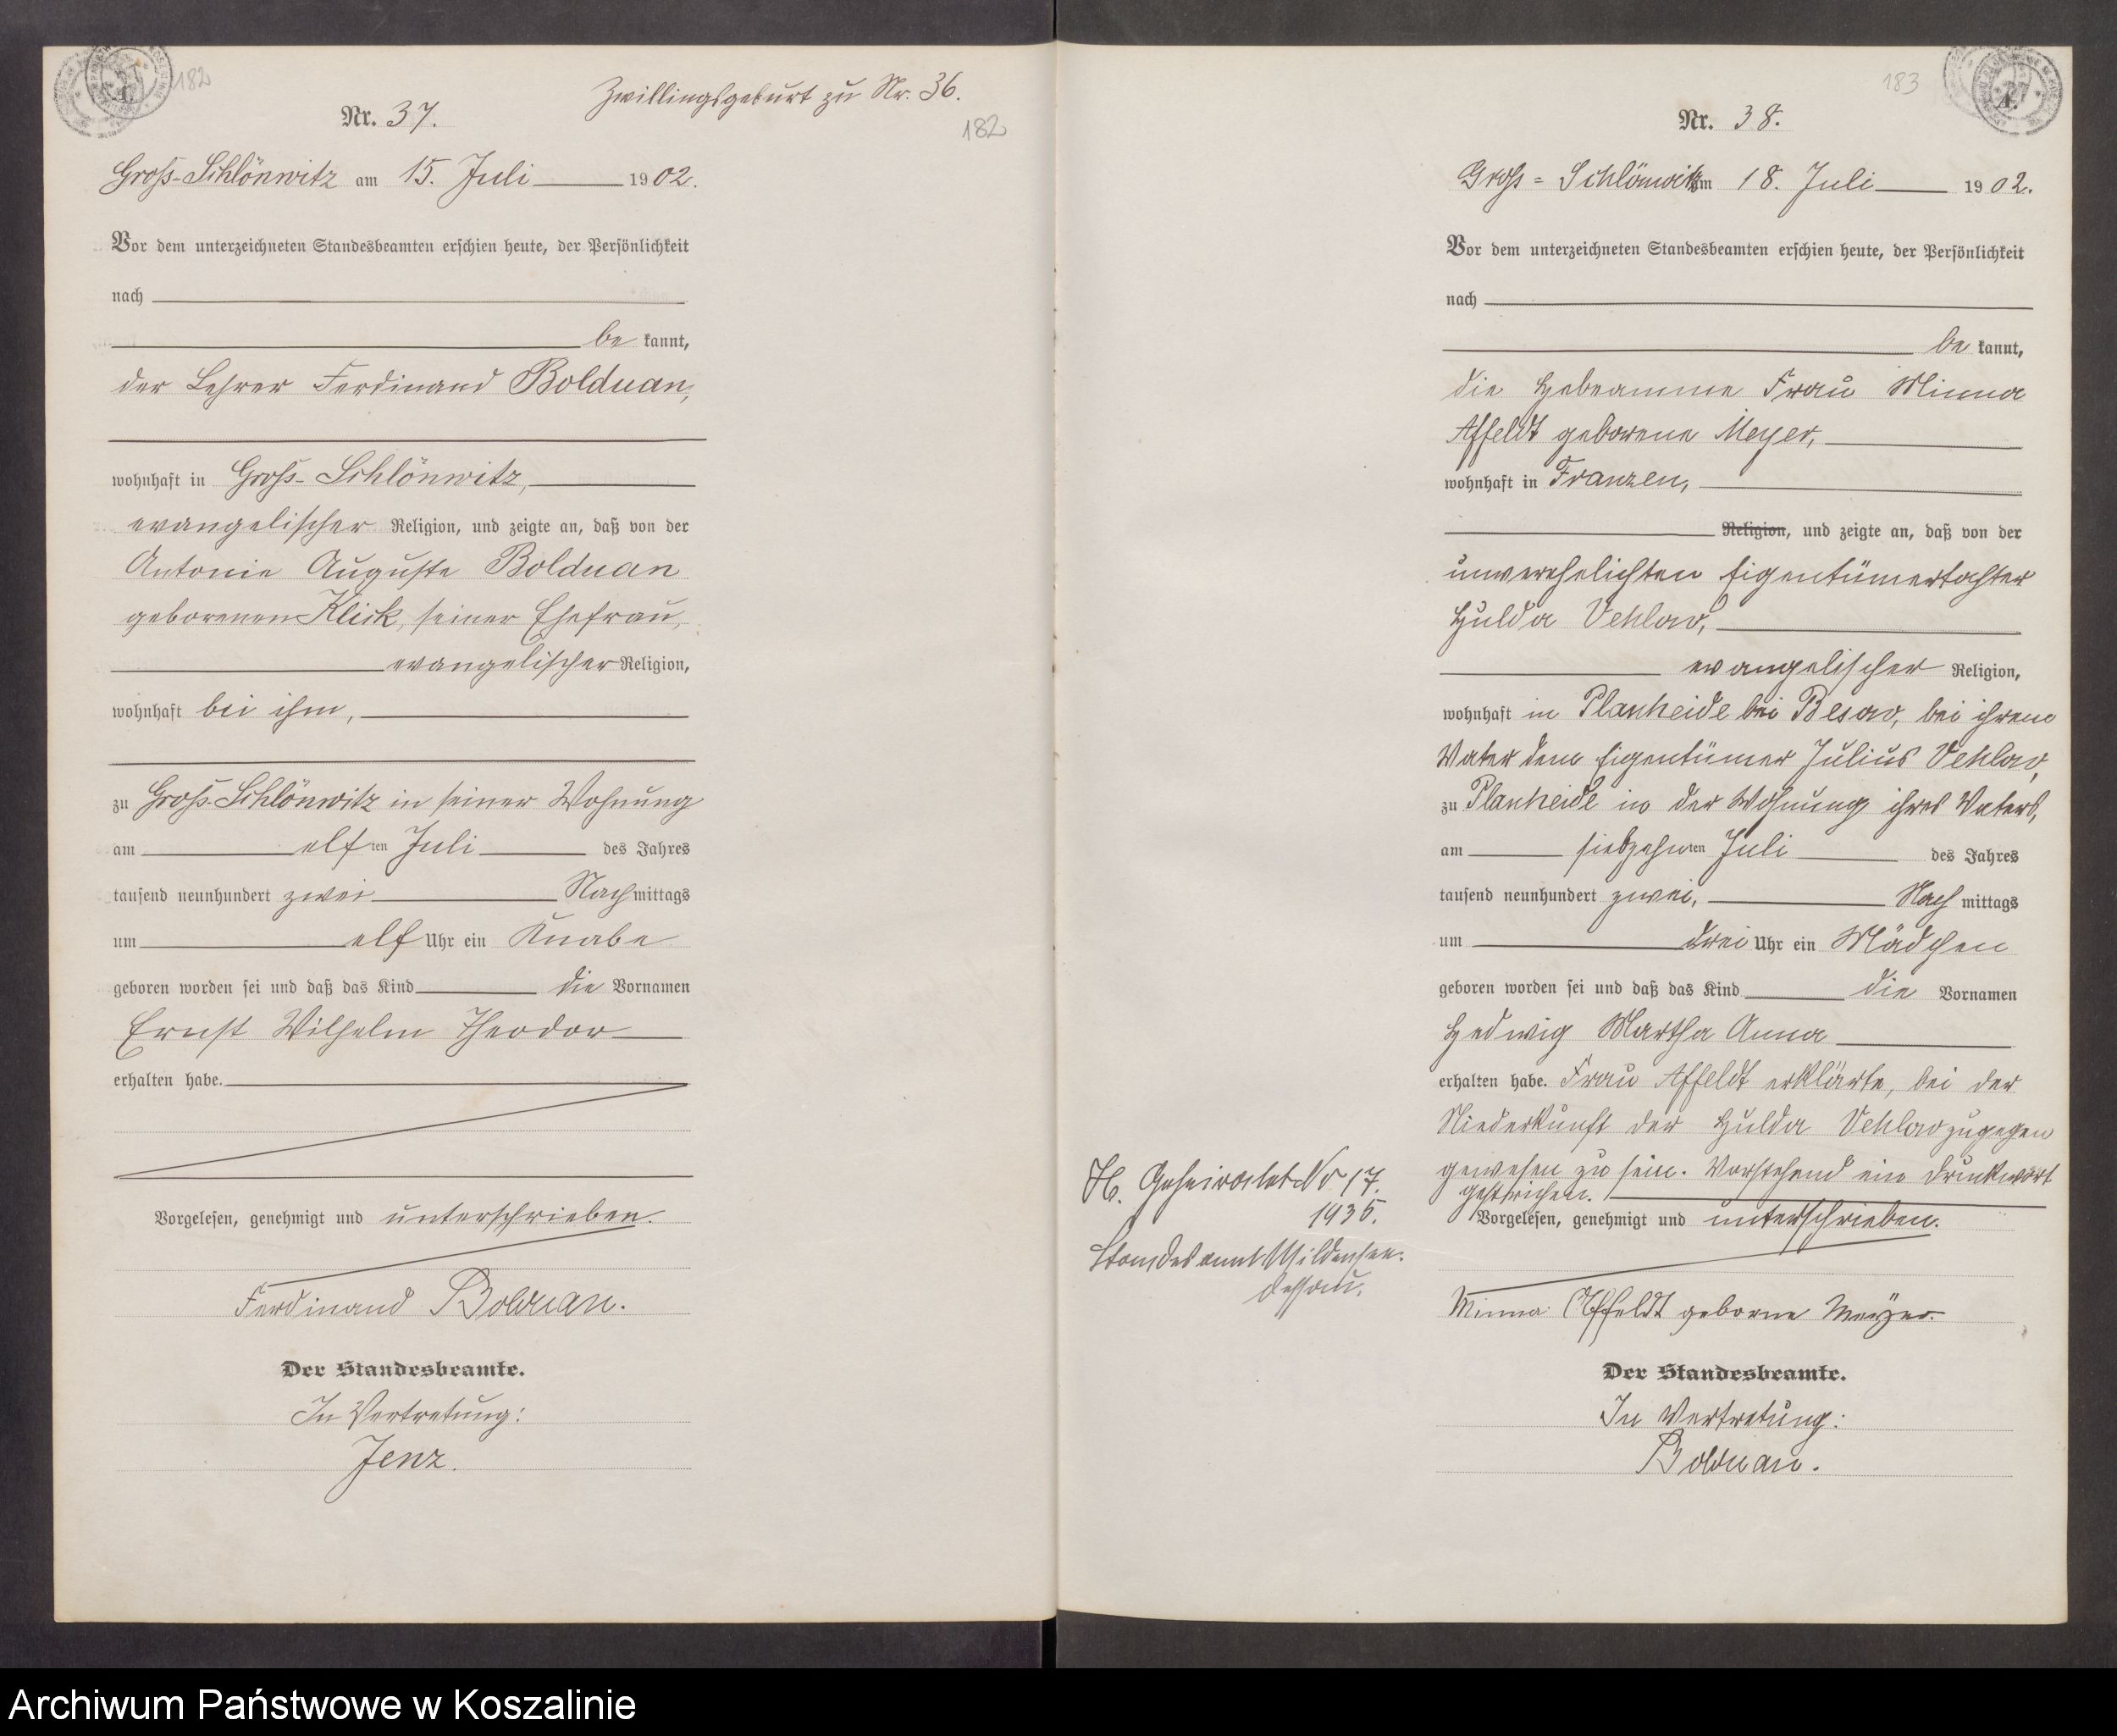 182
Zwillingsgeburt zu Nr. 36.
182
Nr. 37.
Groß-Schlönwitz am 15. Juli 1902.
Vor dem unterzeichneten Standesbeamten erschien heute, der Persönlichkeit
nach
be kannt,
der Lehrer Ferdinand Bolduan,
wohnhaft in Groß-Schlönwitz,
evangelischer Religion, und zeigte an, daß von der
Antonie Auguste Bolduan
geborenen Klick, seiner Ehefrau,
evangelischer Religion,
wohnhaft bei ihm,
zu Groß-Schlönwitz in seiner Wohnung
am elf ten Juli des Jahres
tausend neunhundert zwei Nach mittags
um elf Uhr ein Knabe
geboren worden sei und daß das Kind die Vornamen
Ernst Wilhelm Theodor
erhalten habe.
Vorgelesen, genehmigt und unterschrieben.
Ferdinand Bolduan.
Der Standesbeamte.
In Vertretung:
Jenz.
183
A.
Nr. 38.
Groß=Schlönwitz am 18. Juli 1902.
Vor dem unterzeichneten Standesbeamten erschien heute, der Persönlichkeit
nach
be kannt,
die Hebeamme Frau Minna
Affeldt geborene Meyer,
wohnhaft in Franzen,
Religion, und zeigte an, daß von der
unverehelichten Eigentümertochter
Hulda Vehlow,
evangelischer Religion,
wohnhaft in Plankheide bei Besow, bei ihrem
Vater dem Eigentümer Julius Vehlow,
zu Plankheide in der Wohnung ihres Vaters,
am siebzehn ten Juli des Jahres
tausend neunhundert zwei, Nach mittags
um drei Uhr ein Mädchen
geboren worden sei und daß das Kind die Vornamen
Hedwig Martha Anna
erhalten habe. Frau Affeldt erklärte, bei der
Niederkunft der Hulda Vehlow zugegen
gewesen zu sein. Vorstehend ein Druckwort
gestrichen.
Vorgelesen, genehmigt und unterschrieben.
Minna Affeldt geborne Meyer.
Der Standesbeamte.
In Vertretung:
Bolduan.
H. Geheiratet Nr 17.
1935.
Standesamt Mildensee.
Dessau.
Archiwum Państwowe w Koszalinie